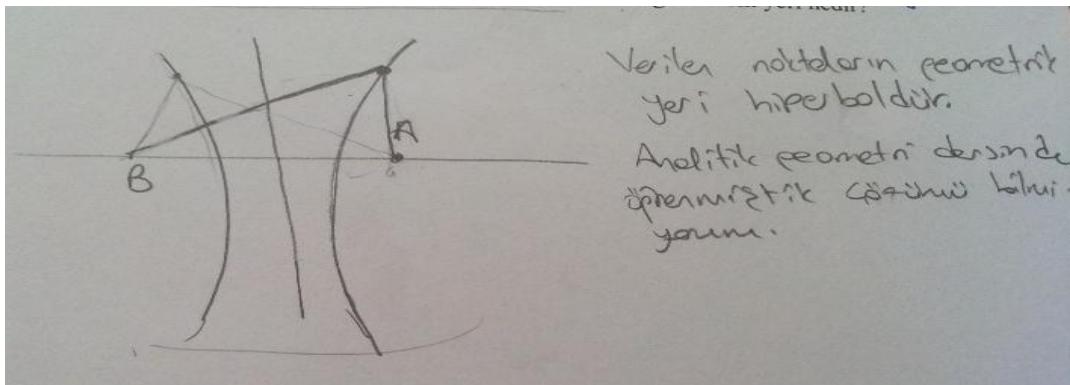 yeri nedir?
Verilen noktaların geometrik
yeri hiperboldür.
Analitik geometri dersinde
öğrenmiştik çözümü bilmi-
yorum.
A
B